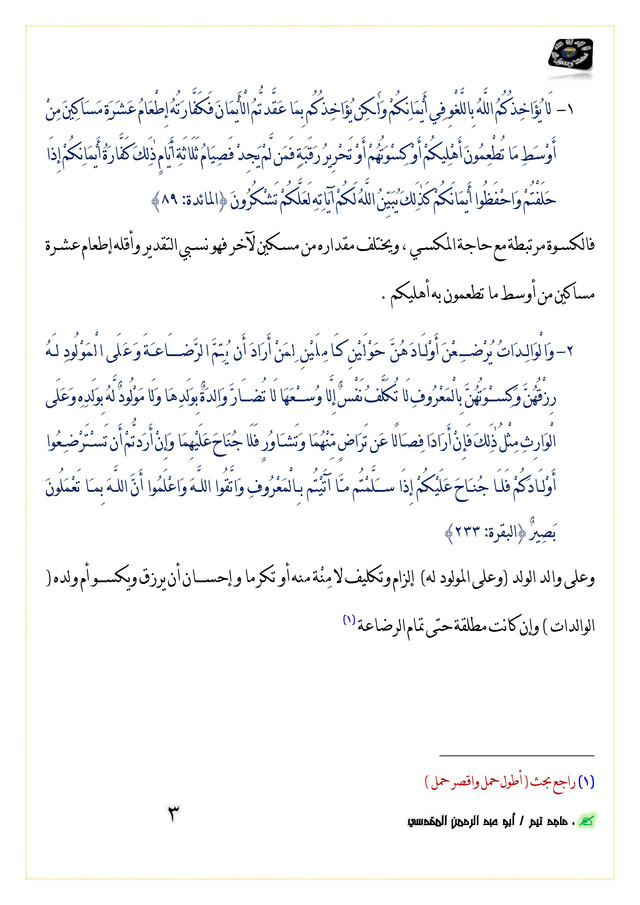 ١- لَا يُؤَاخِذُكُمُ اللَّهُ بِاللَّغْوِ فِي أَيْمَانِكُمْ وَلَٰكِن يُؤَاخِذُكُم بِمَا عَقَّدتُّمُ الْأَيْمَانَ فَكَفَّارَتُهُ إِطْعَامُ عَشَرَةِ مَسَاكِينَ مِنْ
أَوْسَطِ مَا تُطْعِمُونَ أَهْلِيكُمْ أَوْ كِسْوَتُهُمْ أَوْ تَحْرِيرُ رَقَبَةٍ فَمَن لَّمْ يَجِدْ فَصِيَامُ ثَلَاثَةِ أَيَّامٍ ذَٰلِكَ كَفَّارَةُ أَيْمَانِكُمْ إِذَا
حَلَفْتُمْ وَاحْفَظُوا أَيْمَانَكُمْ كَذَٰلِكَ يُبَيِّنُ اللَّهُ لَكُمْ آيَاتِهِ لَعَلَّكُمْ تَشْكُرُونَ ﴿المائدة: ٨٩﴾
فالكسوة مرتبطة مع حاجة المكسي ، ويختلف مقداره من مسكين لآخر فهو نسبي التقدير وأقله إطعام عشرة
مساكين من أوسط ما تطعمون به أهليكم .
٢- وَالْوَالِدَاتُ يُرْضِعْنَ أَوْلَادَهُنَّ حَوْلَيْنِ كَامِلَيْنِ لِمَنْ أَرَادَ أَن يُتِمَّ الرَّضَاعَةَ وَعَلَى الْمَوْلُودِ لَهُ
رِزْقُهُنَّ وَكِسْوَتُهُنَّ بِالْمَعْرُوفِ لَا تُكَلَّفُ نَفْسٌ إِلَّا وُسْعَهَا لَا تُضَارَّ وَالِدَةٌ بِوَلَدِهَا وَلَا مَوْلُودٌ لَّهُ بِوَلَدِهِ وَعَلَى
الْوَارِثِ مِثْلُ ذَٰلِكَ فَإِنْ أَرَادَا فِصَالًا عَن تَرَاضٍ مِّنْهُمَا وَتَشَاوُرٍ فَلَا جُنَاحَ عَلَيْهِمَا وَإِنْ أَرَدتُّمْ أَن تَسْتَرْضِعُوا
أَوْلَادَكُمْ فَلَا جُنَاحَ عَلَيْكُمْ إِذَا سَلَّمْتُم مَّا آتَيْتُم بِالْمَعْرُوفِ وَاتَّقُوا اللَّهَ وَاعْلَمُوا أَنَّ اللَّهَ بِمَا تَعْمَلُونَ
بَصِيرٌ ﴿البقرة: ٢٣٣﴾
وعلى والد الولد (وعلى المولود له) إلزام وتكليف لا مِنْة منه أو تكرما وإحسان أن يرزق ويكسو أم ولده (
الوالدات ) وإن كانت مطلقة حتى تمام الرضاعة (١)
(١) راجع بحث ( أطول حمل واقصر حمل )
٣
. ماجد تيم / أبو عبد الرحمن المقدسي